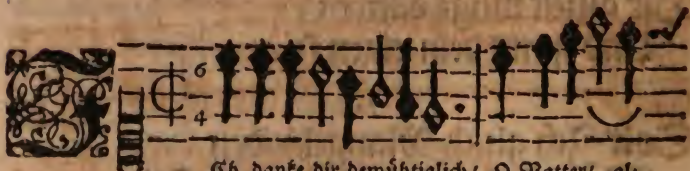 6
4
Ch danke dir demühtiglich/ O Vatter/ al-